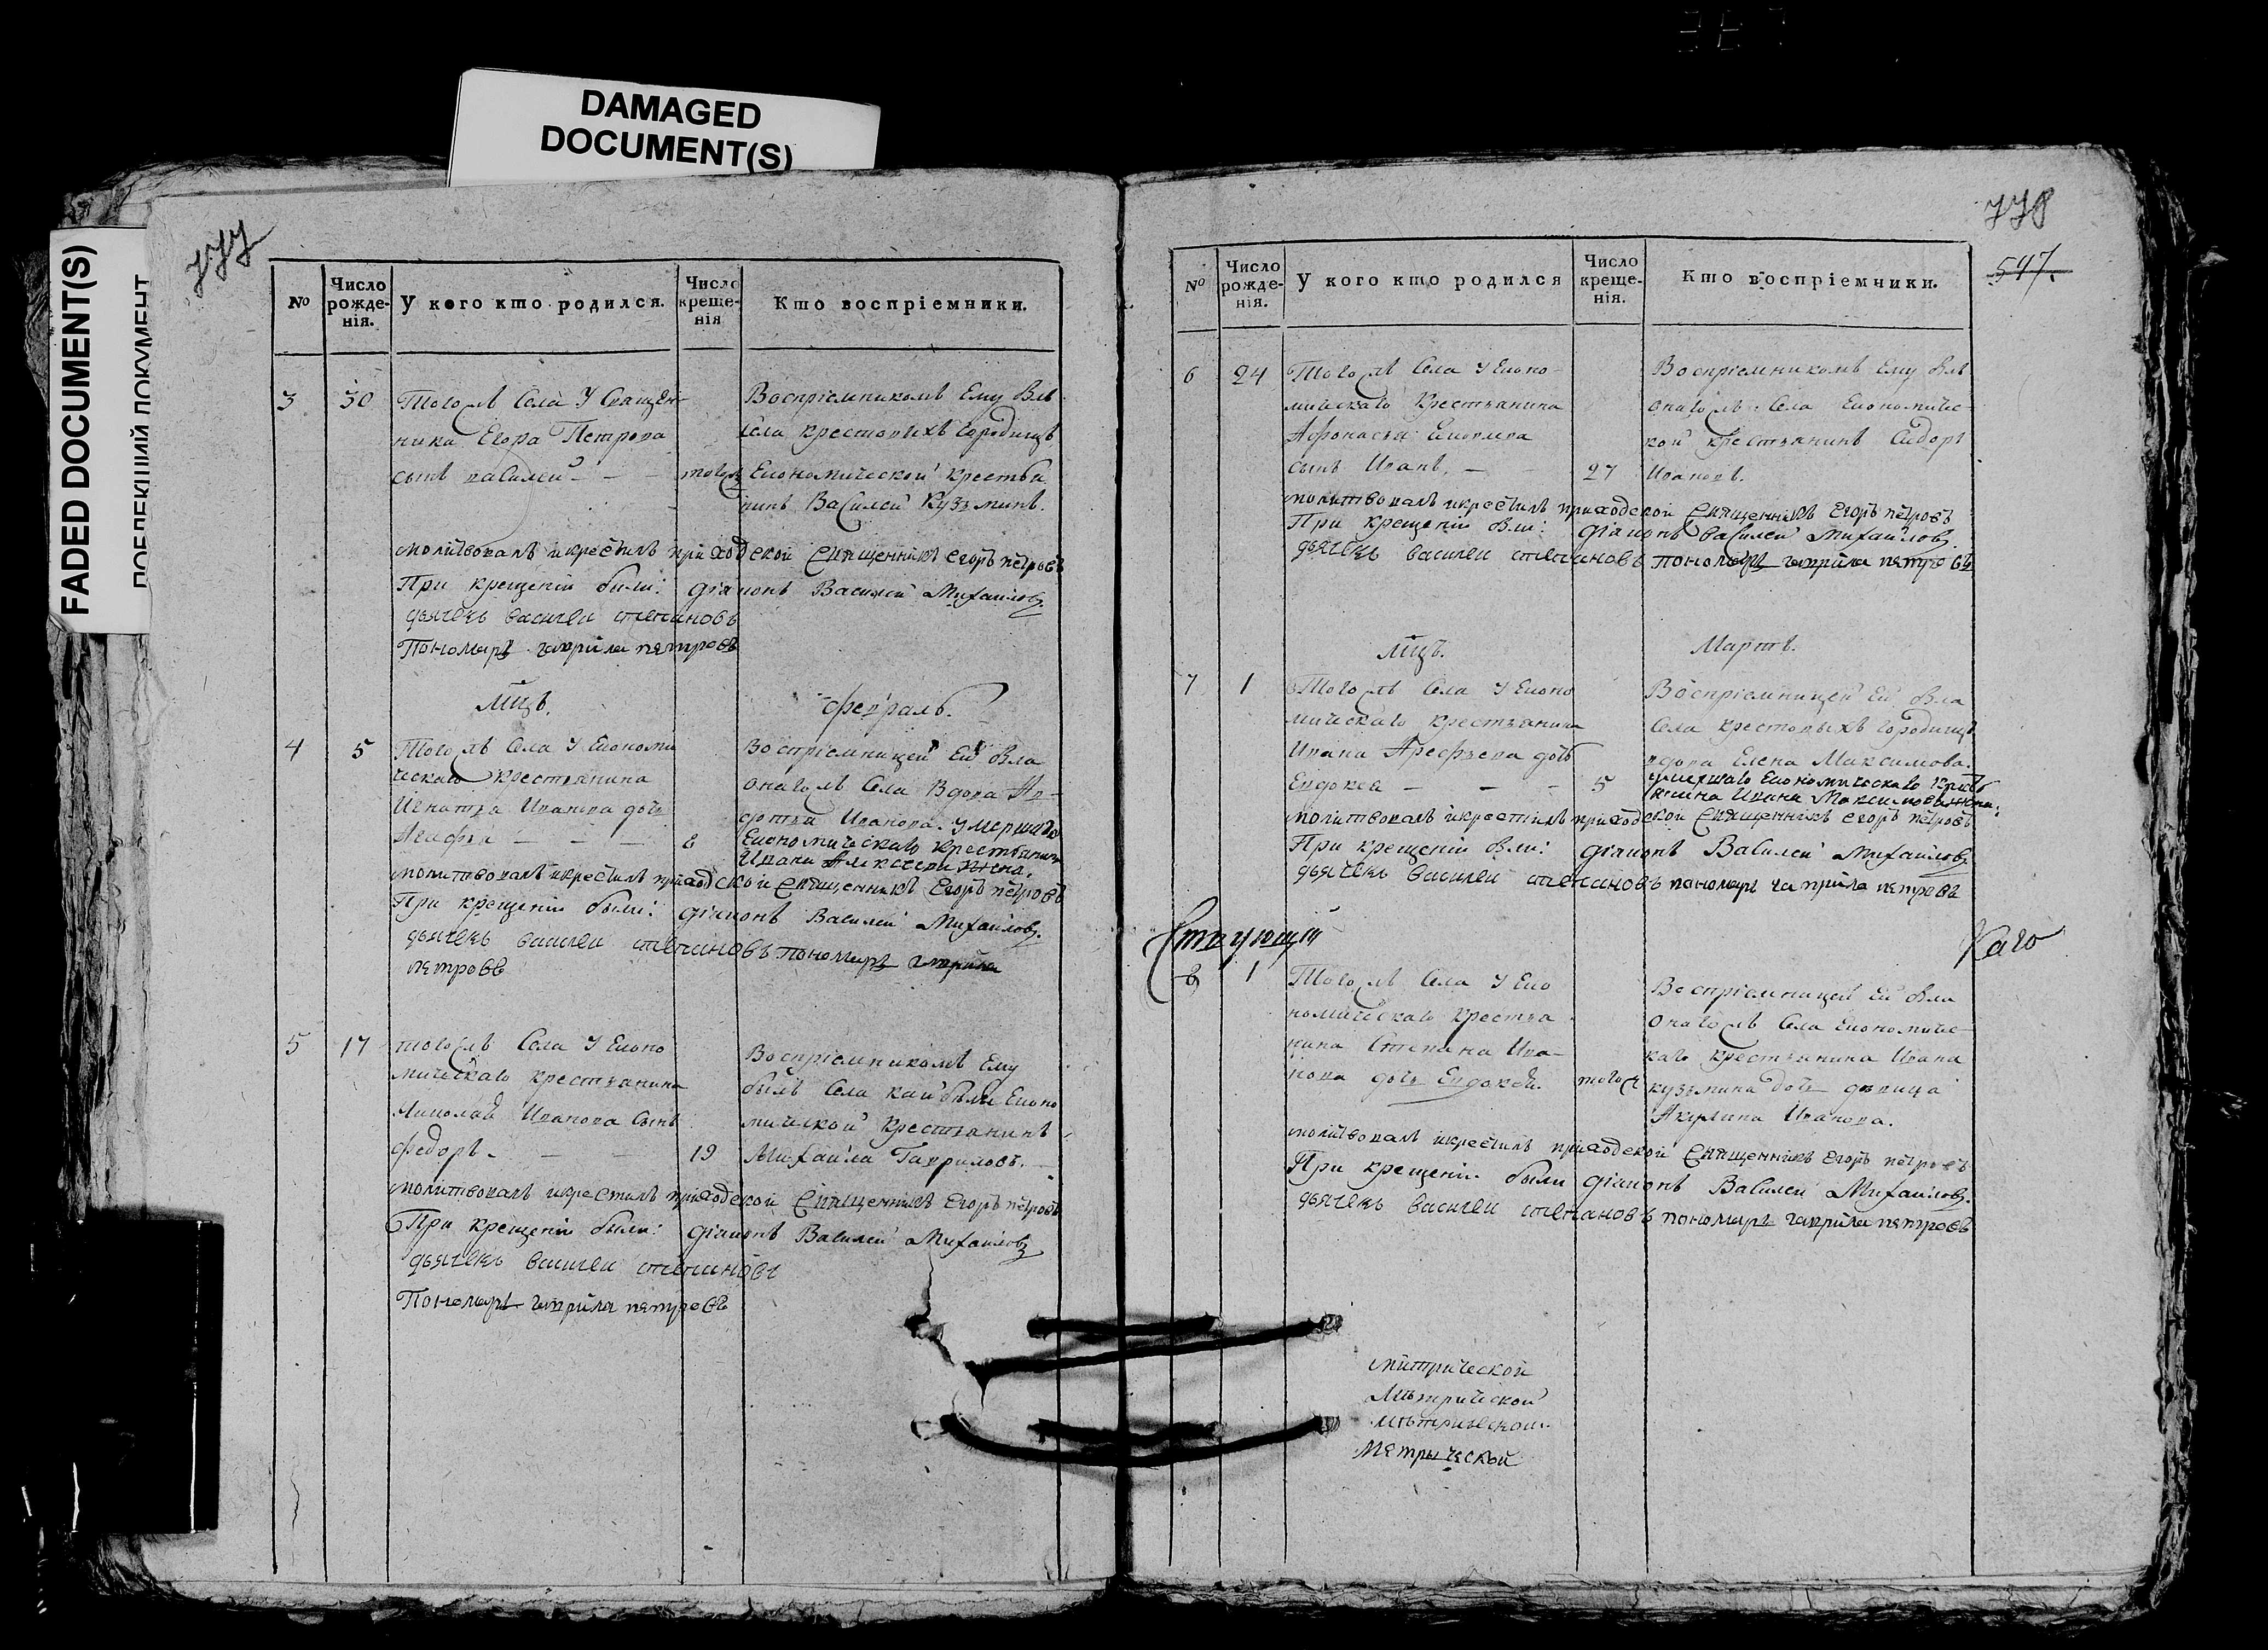 DAMAGED
DOCUMENT(S)
FADED DOCUMENT(S)
777
№
Число рожденія.
У кого кто родился.
Число крещенія
Кто воспріемники.
3 30
Тогожъ Села У Священ-
ника Егора Петрова
сынъ василей — — тогожъ
Воспріемникомъ Ему былъ
села крестовыхъ городищъ
Економической крестья
нинъ Василей Кузьминъ.
молитвовалъ икрестилъ приходской священникъ егоръ петровъ
При крещеніи были: діаконъ Василей Михайловъ.
дьячекъ василеи степановъ
Пономарь гаврила петровъ
Мцъ. февраль.
4 5
Тогожъ Села У Економи
ческаго крестьянина
Игнатья Иванова дочь
Агафья — — — 8
Воспріемницей Ей была
онагожъ Села Вдова Ав-
дотья Иванова. умершаго
Економическаго крестьянина
Ивана Алексеева жена.
молитвовалъ икрестилъ приходской священникъ Егоръ петровъ
При крещеніи были: діаконъ Василей Михайловъ.
дьячекъ василеи степановъ пономарь гаврила
петровъ
5 17
тогожъ Села У Еконо
мическаго крестьянина
Николая Иванова Сынъ
федоръ. — — 19
Воспріемникомъ Ему
былъ Села Еконо
мической крестьянинъ
Михайла Гавриловъ.
молитвовалъ икрестилъ приходской священникъ Егоръ петровъ
При крещеніи были: діаконъ Василей Михайловъ
дьячекъ василеи степановъ
Пономарь гаврила петровъ
778
547.
№
Число рожденія.
У кого кто родился
Число крещенія.
Кто воспріемники.
6 24
Тогожъ Села У Еконо-
мическаго Крестьянина
Афонасья
сынъ Иванъ. — 27
Воспріемникомъ Ему былъ
онагожъ Села Економичес-
кой крестьянинъ Сидоръ
Ивановъ.
молитвовалъ икрестилъ приходской священникъ Егоръ петровъ
При крещеніи были: діаконъ Василей Михайловъ.
дьячекъ василеи степановъ пономарь гаврила петровъ
Мцъ. Мартъ.
7 1
Тогожъ Села У Еконо
мическаго крестьянина
Ивана Арефьева дочь
Евдокея — — — 5
Воспріемницей Ей была
Села крестовыхъ городищъ
вдова Елена Максимова.
умершаго Економическаго
Ивана Максимова жена.
молитвовалъ икрестилъ приходской священникъ егоръ петровъ
При крещеніи были: діаконъ Василей Михайловъ
дьячекъ василеи степановъ пономарь гаврила петровъ
каго
8 1
Тогожъ Села У Еко
номическаго Крестья
нина Степана Ива-
нова дочь Евдокея. тогожъ
Воспріемницей Ей была
Онагожъ Села Економичес-
каго крестьянина Ивана
кузьмина дочь девица
Акулина Иванова.
молитвовалъ икрестилъ приходской священникъ Егоръ петровъ
При крещеніи были діаконъ Василей Михайловъ.
дьячекъ василеи степановъ пономарь гаврила петровъ
митрической
Мѣтрической
мѣтрической
Метрыческой